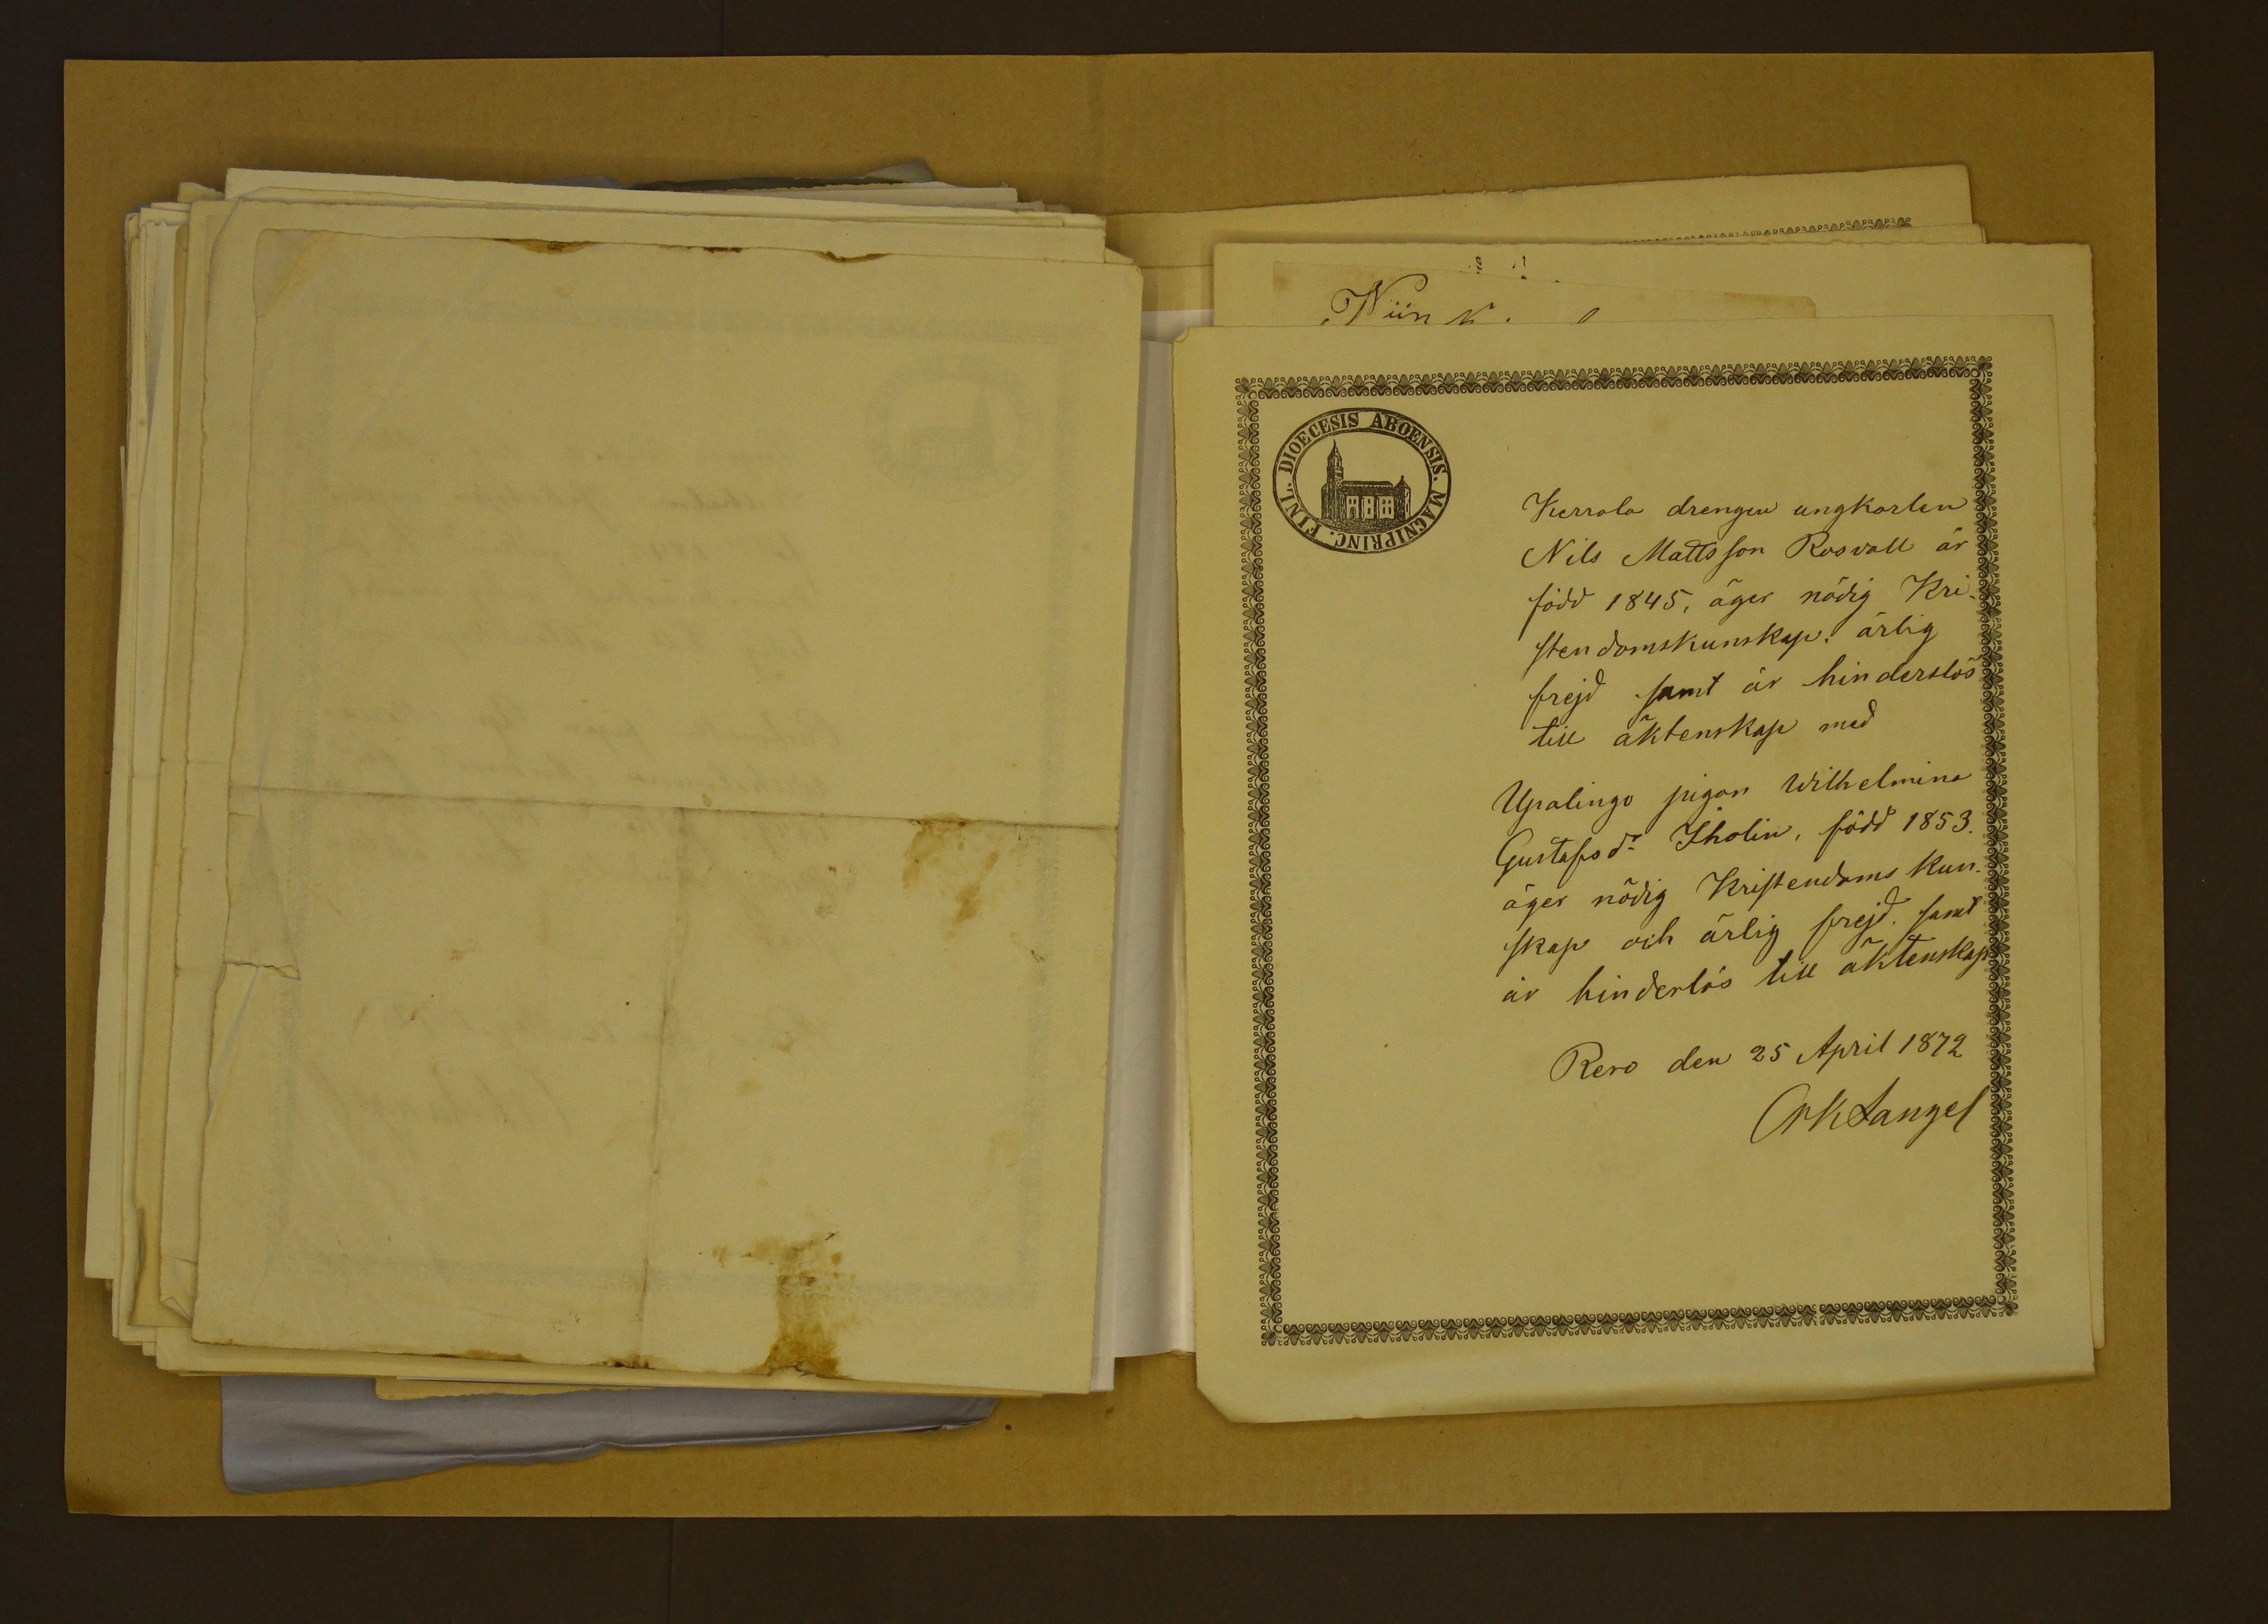 Wiin
DIOECESIS ABOENSIS. MAGNIPRINC. FINL.
Kerrola drengen ungkarlen
Nils Mattsson Rosvall är
född 1845, äger nödig Kri-
stendomskunskap, ärlig
frejd samt är hinderslös
till äktenskap med
Upalingo pigan Wilhelmina
Gustafsdr Iholin, född 1853.
äger nödig Kristendoms kun-
skap och ärlig frejd. samt
är hinderlös till äktenskap
Revo den 25 April 1872